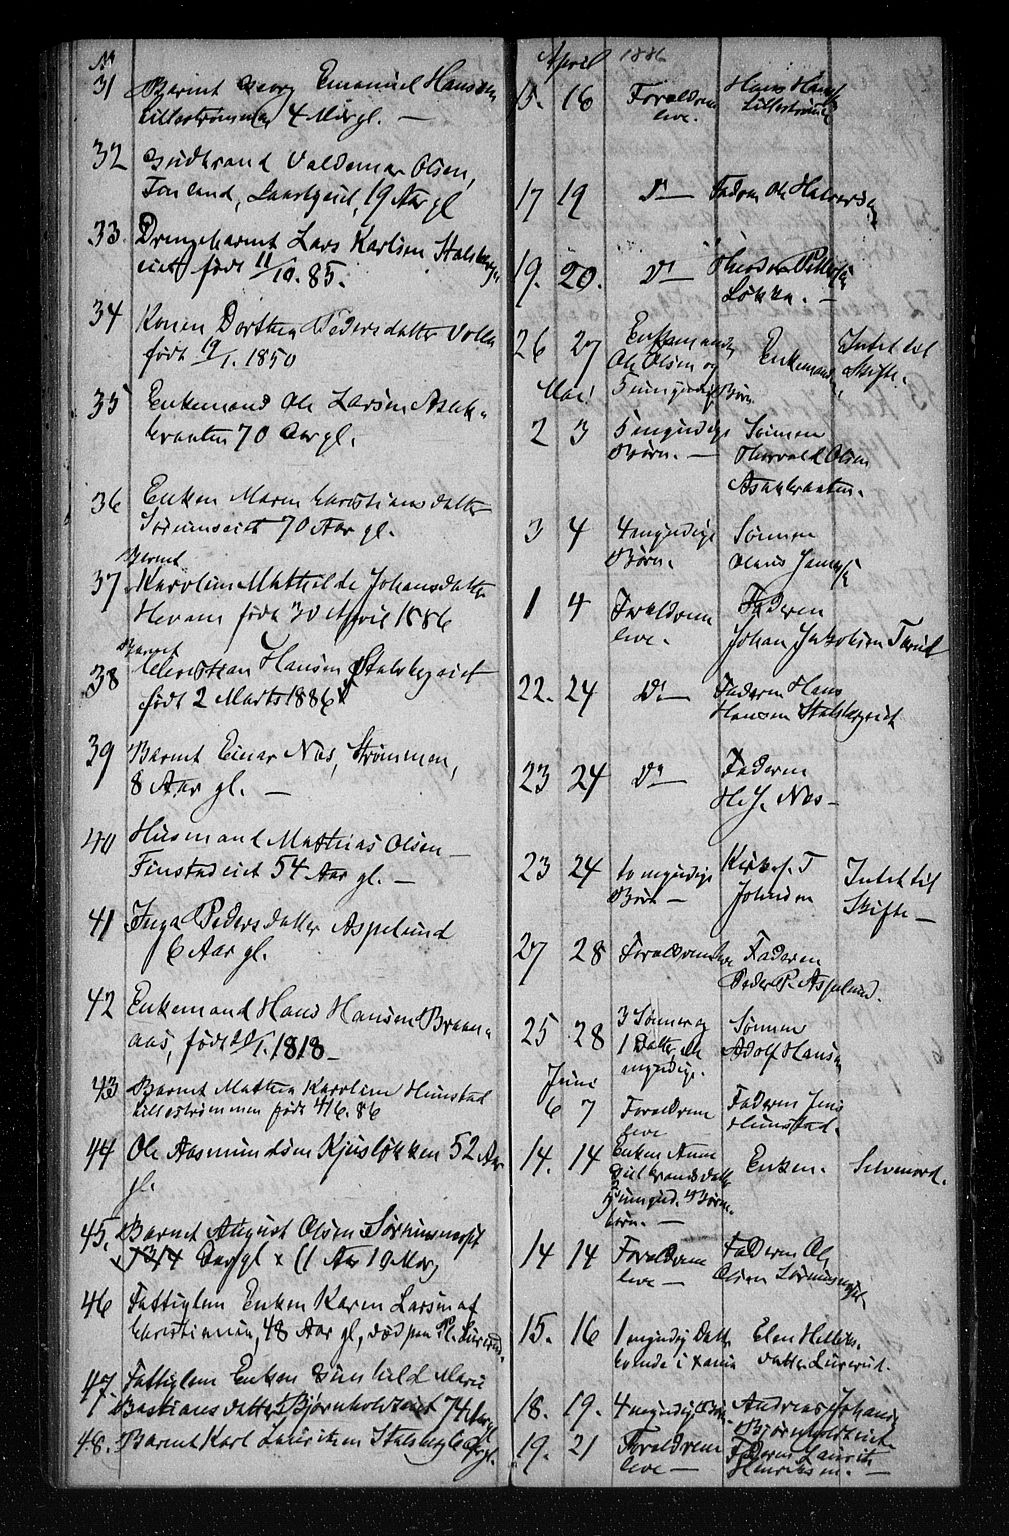 No April 1886
31 Barnet Georg Emanuel Hansen 15. 16 Forældrene Hans Hansen
Lillestrømmen 4 Mdr gl. — leve. Lillestrømmen
32 Gudbrand Valdemar Olsen,
19 Aar gl 17 19 Do — Faderen Ole Halvorsen
33. Drengebarnet Lars Karlsen Stalsberg-
eiet født 11/10. 85. 19. 20. Do Theodor Pettersen
Løkka. —
34 Konen Dorthea Pedersdatter Volla 26 27 Enkemanden Enkemanden Intet til
født 19/1. 1850 Ole Olsen og Skifte.
Mai 5 umyndige Børn
35 Enkemand Ole Larsen Asak-
kroken 70 Aar gl. 2 3 5 myndige Sønnen
Børn. — Thorvald Olsen
36 Enken Maren Christiansdatter
Sørumseiet 70 Aar gl. 3 4 4 myndige Sønnen
Børn.
Barnet
37 Karoline Mathilde Johansdatter 1 4 Forældrene Faderen
født 30 April 1886 leve. Johan Jakobsen
Barnet
38 Christian Hansen Stalsbergeiet 22. 24 Do — Faderen Hans
født 2 Marts 1886 Hansen Stalsbergeiet
39 Barnet Einar Nes, Strømmen, 23 24 Do — Faderen
8 Aar gl. — H. J. Nes —
40 Husmand Mathias Olsen — 23 24 to myndige Kirkes. T Intet til
Finstadeiet 54 Aar gl. — Børn — Johnsen Skifte —
41 Inga Pedersdatter Aspelund 27 28 Forældrene leve Faderen
6 Aar gl. Peder P. Aspelund.
42 Enkemand Hans Hansen Braan-
aas, født 1818 — 25 28 3 Sønner og Sønnen
1 Datter alle Adolf Hansen
myndige.
Juni
43 Barnet Mathea Karoline Huustad 6 7 Forældrene Faderen Jens
Lillestrømmen født 4/6. 86 leve Huustad.
44 Ole Aasmundsen Kjusløkken 52 Aar 14. 14 Enken Anne Enken. Selvmord.
gl. Gulbrandsdatter
45. Barnet August Olsen Sørumsmoset 14 14 Forældrene Faderen Ole
gl x (1 Aar 10 Mdr) leve — Olsen Sørumsmoset
46 Fattiglem Enken Karen Larsen af
Christiania, 48 Aar gl, død paa Pl. Lurerud. 15. 16 1 myndig Datter Elen Helliks-
datter Lurerud.
47. Fattiglem Enken Gunhild Marie
Bastiansdatter Bjørnholdteiet 74 Aar gl 18. 19. 4 myndige Børn Andreas Johans
Bjørnholdteiet
48. Barnet Karl Lauritsen Stalsberg gl. 19. 21 Forældrene Faderen Laurits
leve — Henriksen. —